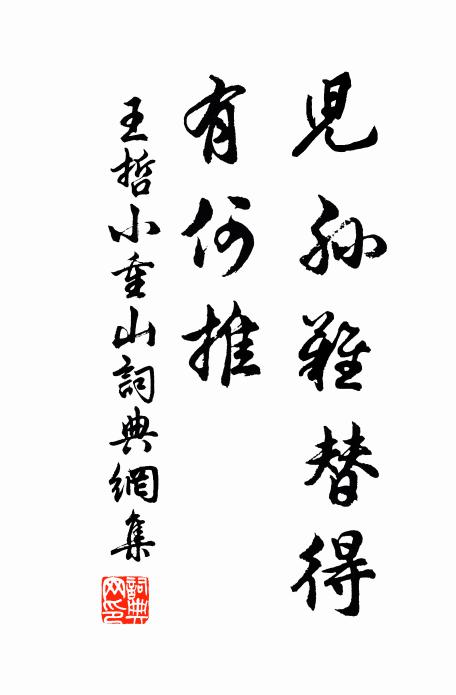 兒孫難替得
有何推
王哲小重山詞典網集
詞典網印